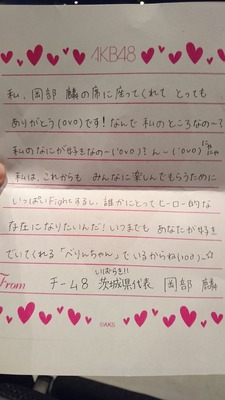 AKB48
私、岡部 麟の席に座ってくれて とっても
ありがとう(OVO)です!なんで 私のところなの~?
私のなにが好きなの~('OVO)?ん~('OVO)にゃにゃ
私は、これからも みんなに楽しんでもらうために
いっぱいFightするし、誰かにとってヒーロー的な
存在になりたいんだ!いつまでも あなたが好き
でいてくれる「べりんちゃん」でいるからね(OVO)~☆
From チーム8 いばらき!!茨城県代表 岡部 麟
©AKS